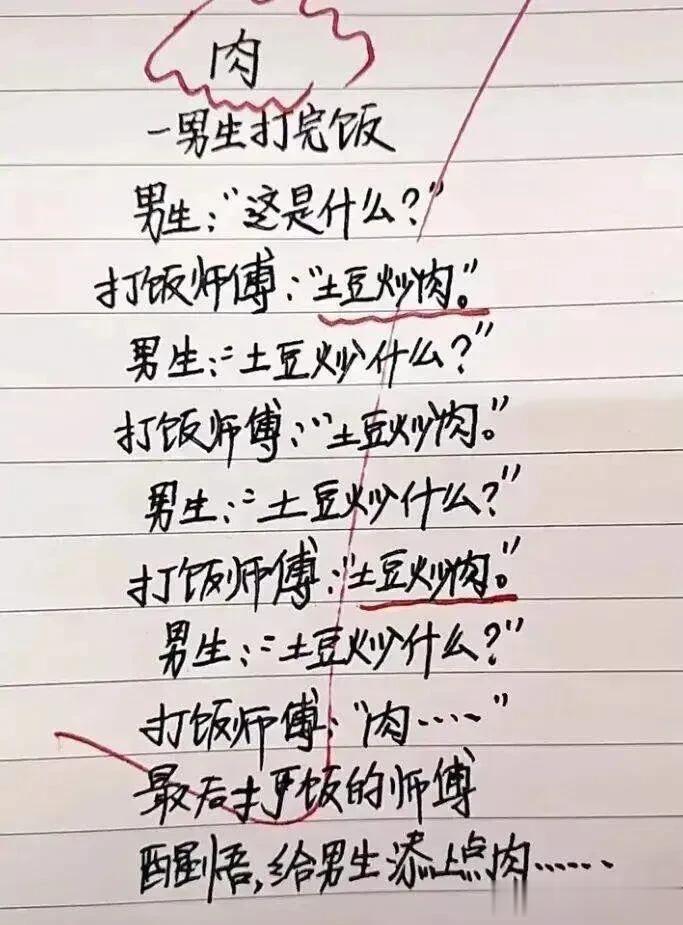 肉
一男生打完饭
男生:"这是什么?"
打饭师傅:"土豆炒肉。"
男生:"土豆炒什么?"
打饭师傅:"土豆炒肉。"
男生:"土豆炒什么?"
打饭师傅:"土豆炒肉。"
男生:"土豆炒什么?"
打饭师傅:"肉……"
最后打饭的师傅
醒悟,给男生添上点肉……